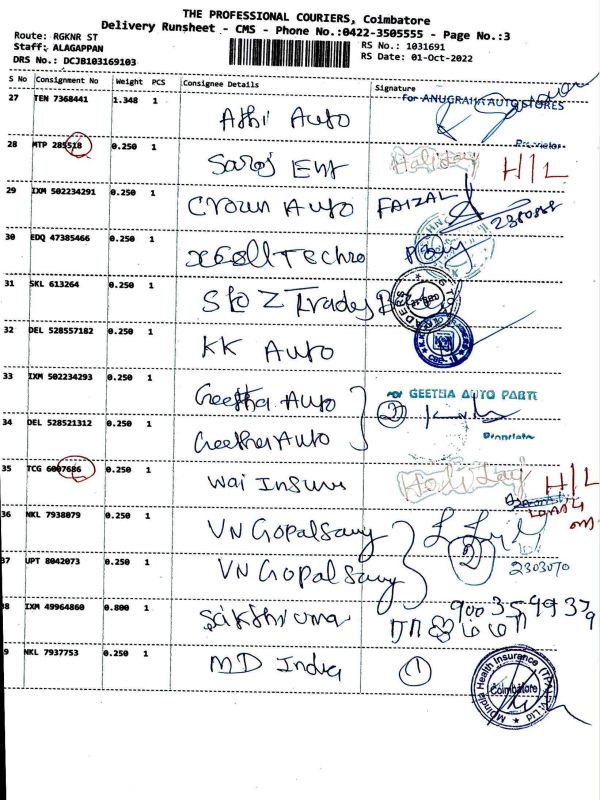 THE PROFESSIONAL COURIERS, Coimbatore
Delivery Runsheet - CMS - Phone No.:0422-3505555 - Page No.:3
Route: RGKNR ST
Staff: ALAGAPPAN
RS No.: 1031691
DRS No.: DCJB103169103
RS Date: 01-Oct-2022
S No Consignment No Weight PCS Consignee Details Signature
27 TEN 7368441 1.348 1 Athi Auto For ANUGRAHA AUTO STORES
Proprietor
28 MTP 285518 0.250 1 Saroj Ent Holiday H/L
29 IXM 502234291 0.250 1 Crown Auto FAIZAL
30 EDQ 47385466 0.250 1 Xcell Techno
31 SKL 613264 0.250 1 S to Z Trades
32 DEL 528557182 0.250 1 KK Auto
33 IXM 502234293 0.250 1 Geetha Auto For GEETHA AUTO PARTS
2
Proprietor
34 DEL 528521312 0.250 1 Geetha Auto
35 TCG 6007686 0.250 1 Holiday H/L
36 NKL 7938079 0.250 1 VN Gopalsamy
2
37 UPT 8042073 0.250 1 VN Gopalsamy 2303070
38 IXM 49964860 0.800 1
9 NKL 7937753 0.250 1 MD India 1
MDIndia Health Insurance (TPA) Pvt. Ltd
Coimbatore